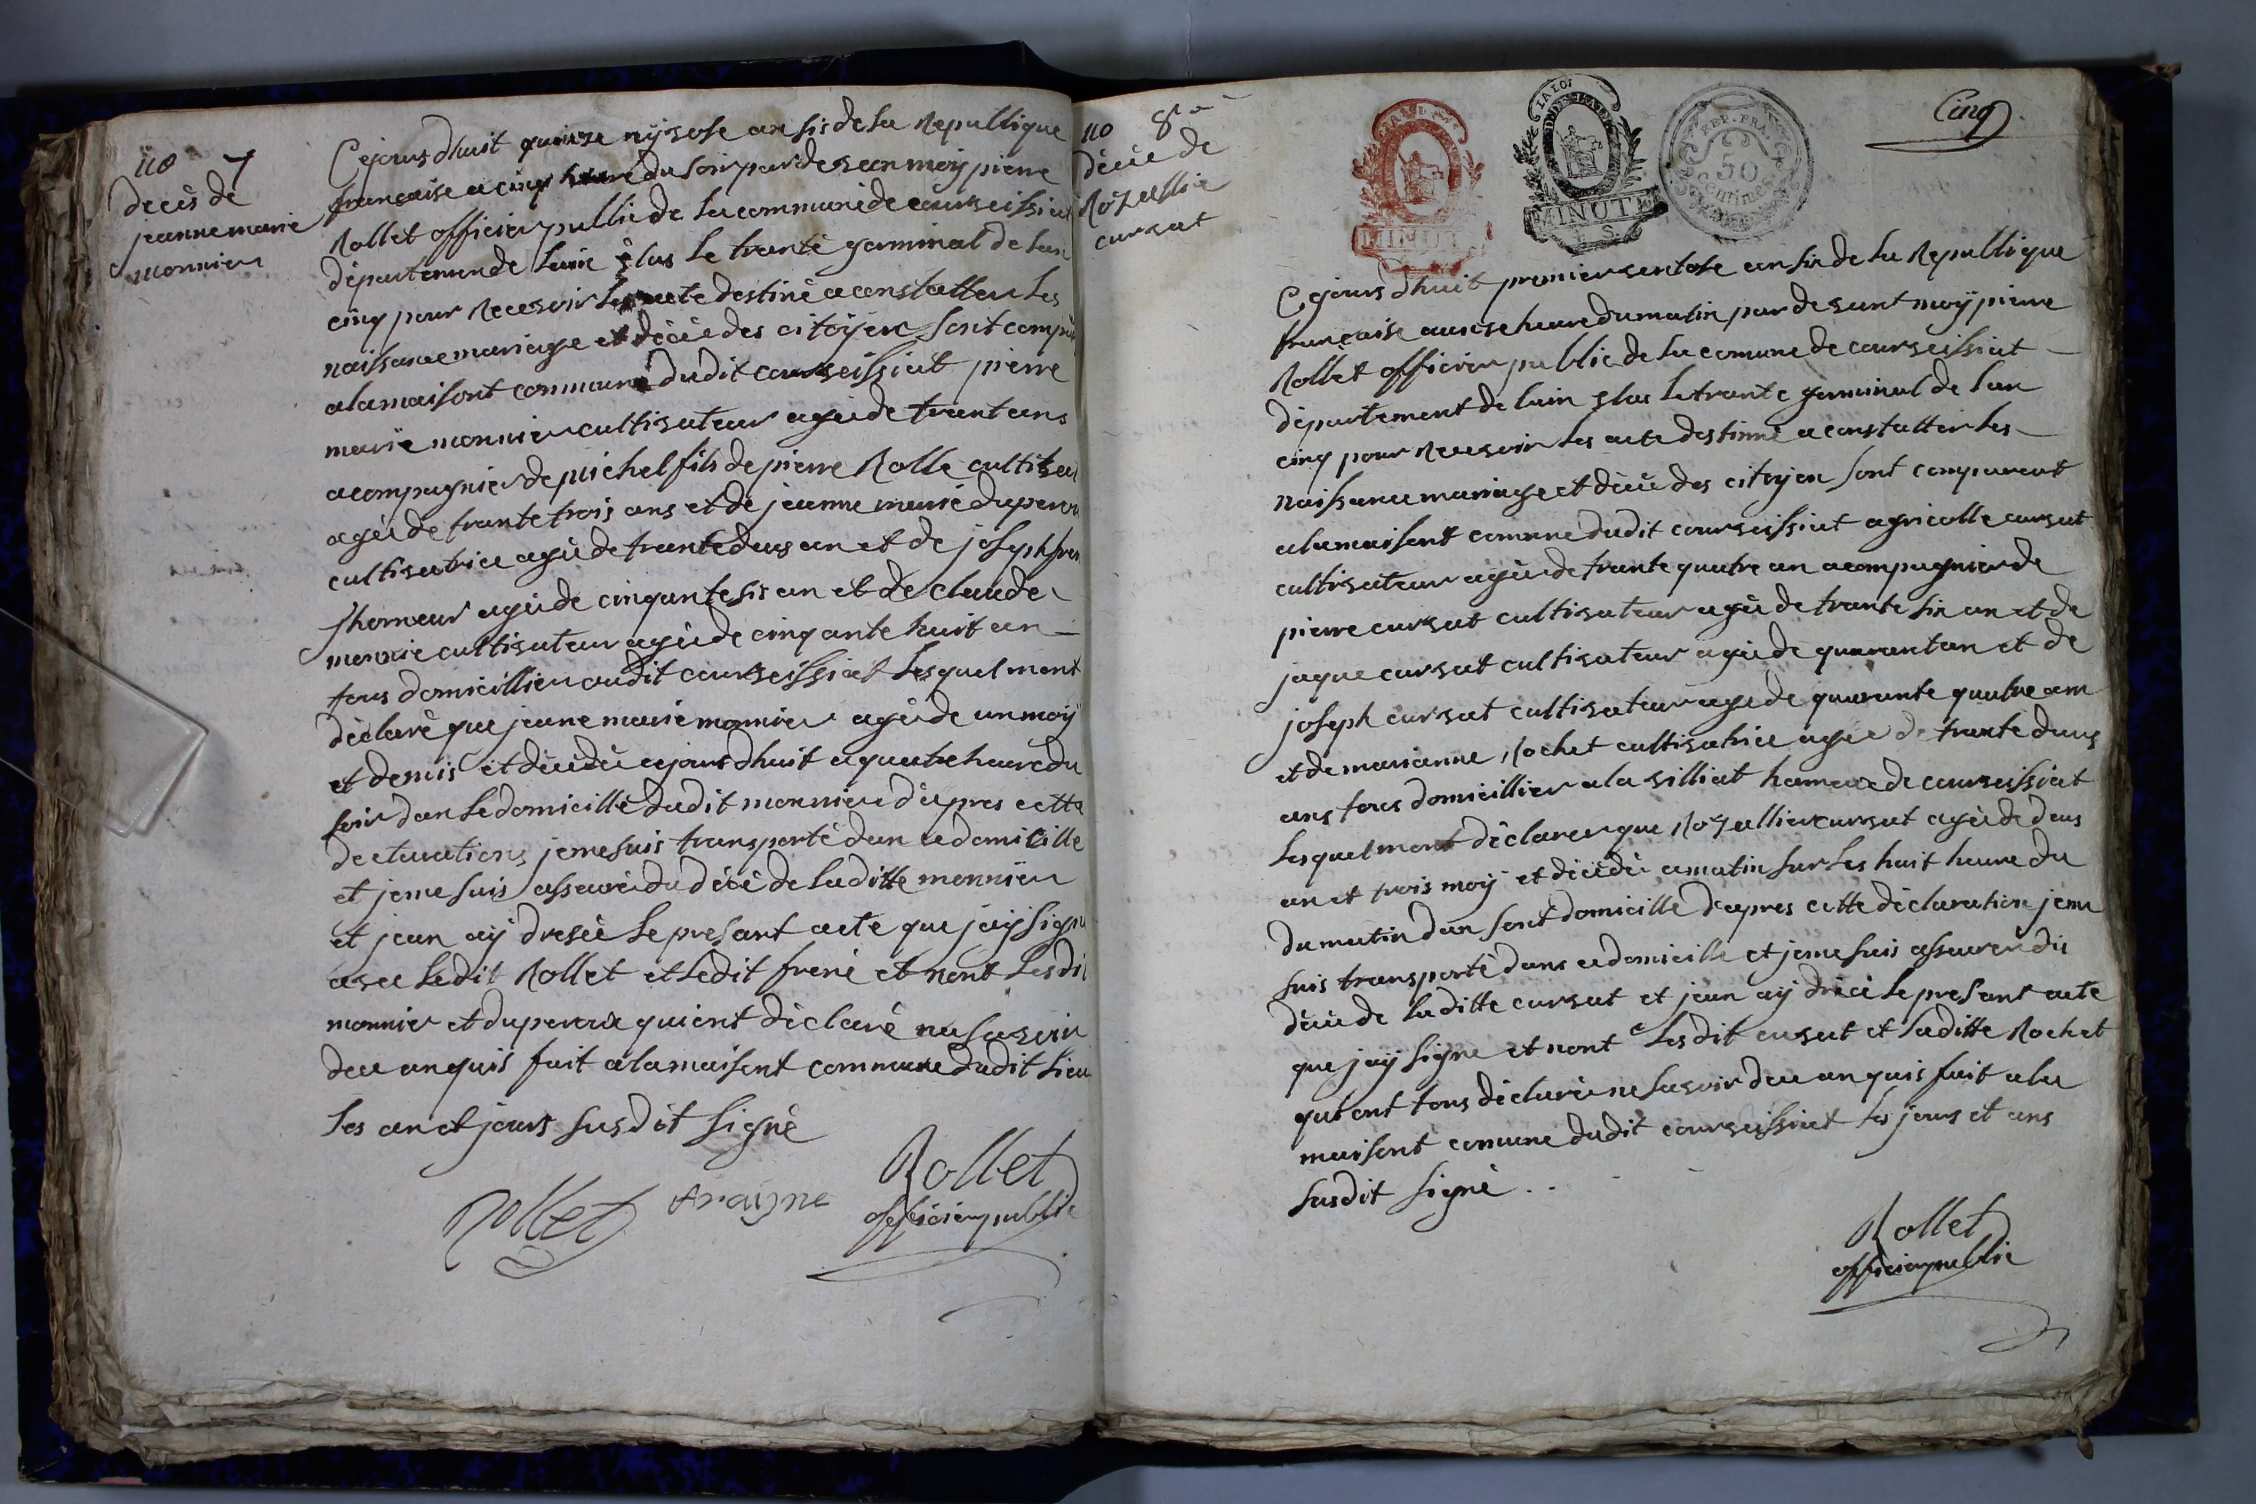 no 7
decès de
jeanne marie
monnier
Cejours dhuit quinze nivsose an sis de la Republique
francaise a cinq heure du soir par de s an moy pierre
Rollet officier publie de la commune de courseissiat
département de lain êlus le trante germinal de lan
cinq pour Recesoir les acte destiné a constatter les
naissance mariage et décè des citoÿen sont comparu
a la maisont commune dudit courseissiat pierre
marie monnier cultisateur agée de trant ans
acompagnier de michel fils de pierre Rolle cultisateur
agée de trante trois ans et de jeanne marie duperoux
cultisatrice agée de trante deus an et de joseph frene
honneur agée de cinquante sis an et de claude
cultisateur agée de cinq ante huit an
tous domicillier audit courseissiat lesquel mont
déclaré que jeane marie monnier agée de un moÿ
et demis et décédé cejours dhuit a quatre heure du
soir dan le domicille dudit monnier d'apres cette
declarations je me suis transporté dan ce domicille
et je me suis assuré du décè de laditte monnier
et jean aÿ dresèe le presant acte que jaÿ signe
avec ledit Rollet et ledit frené et nont les dit
monnier et duperoux quient déclaré ne sasoir
dece anquis fait a la maisont commune dudit lieu
les an et jours susdit signé
Rollet
araigne
Rollet
officier publie
no 8
décè de
Rozallie
cursat
Cinq
MINUTE
LA LOI
MINUTE
REP. FRA.
50
Centimes
Cejours dhuit premier sentose an sis de la Republique
francaise a onse heure du matin par de sant moÿ pierre
Rollet officier publie de la comune de courseissiat
département de lain êlus le trante germinal de lan
cinq pour Recesoir les acte destinné a constatter les
naissance mariage et décè des citoÿen sont comparent
a la maisont comune dudit courseissiat agricolle cursat
cultisateur agée de trante quatre an acompagnier de
pierre cursat cultisateur agée de trante sis an et de
jaque cursat cultisateur agée de quarant an et de
joseph cursat cultisateur agé de quarante quatre an
et de marianne Rochet cultisatrice agée de trante deus
ans tous domicillier a la silliat hameau de courseissiat
lesquel mont déclarer que Rozallier cursat agée de deus
an et trois moÿ et décèdé ce matin sur les huit heure du
du matin dan sont domicille d'apres cette déclaration je me
suis transporté dans ce domicille et je me suis assurer du
décè de laditte cursat et jean aÿ drècé le presant acte
que jaÿ signe et nont les dit cursat et laditte Rochet
quient tous déclaré ne sasoir dece anquis fait a la
maisont comune dudit courseissiat les jours et ans
susdit signé . .
Rollet
officier publie